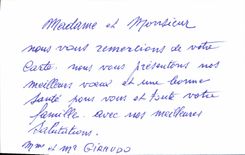 Madame et Monsieur
nous vous remercions de votre
Carte. nous vous présentons nos
meilleurs vœux et une bonne
santé pour vous et toute votre
famille. avec nos meilleures
salutations.
Mme et Mr GIRAUDO